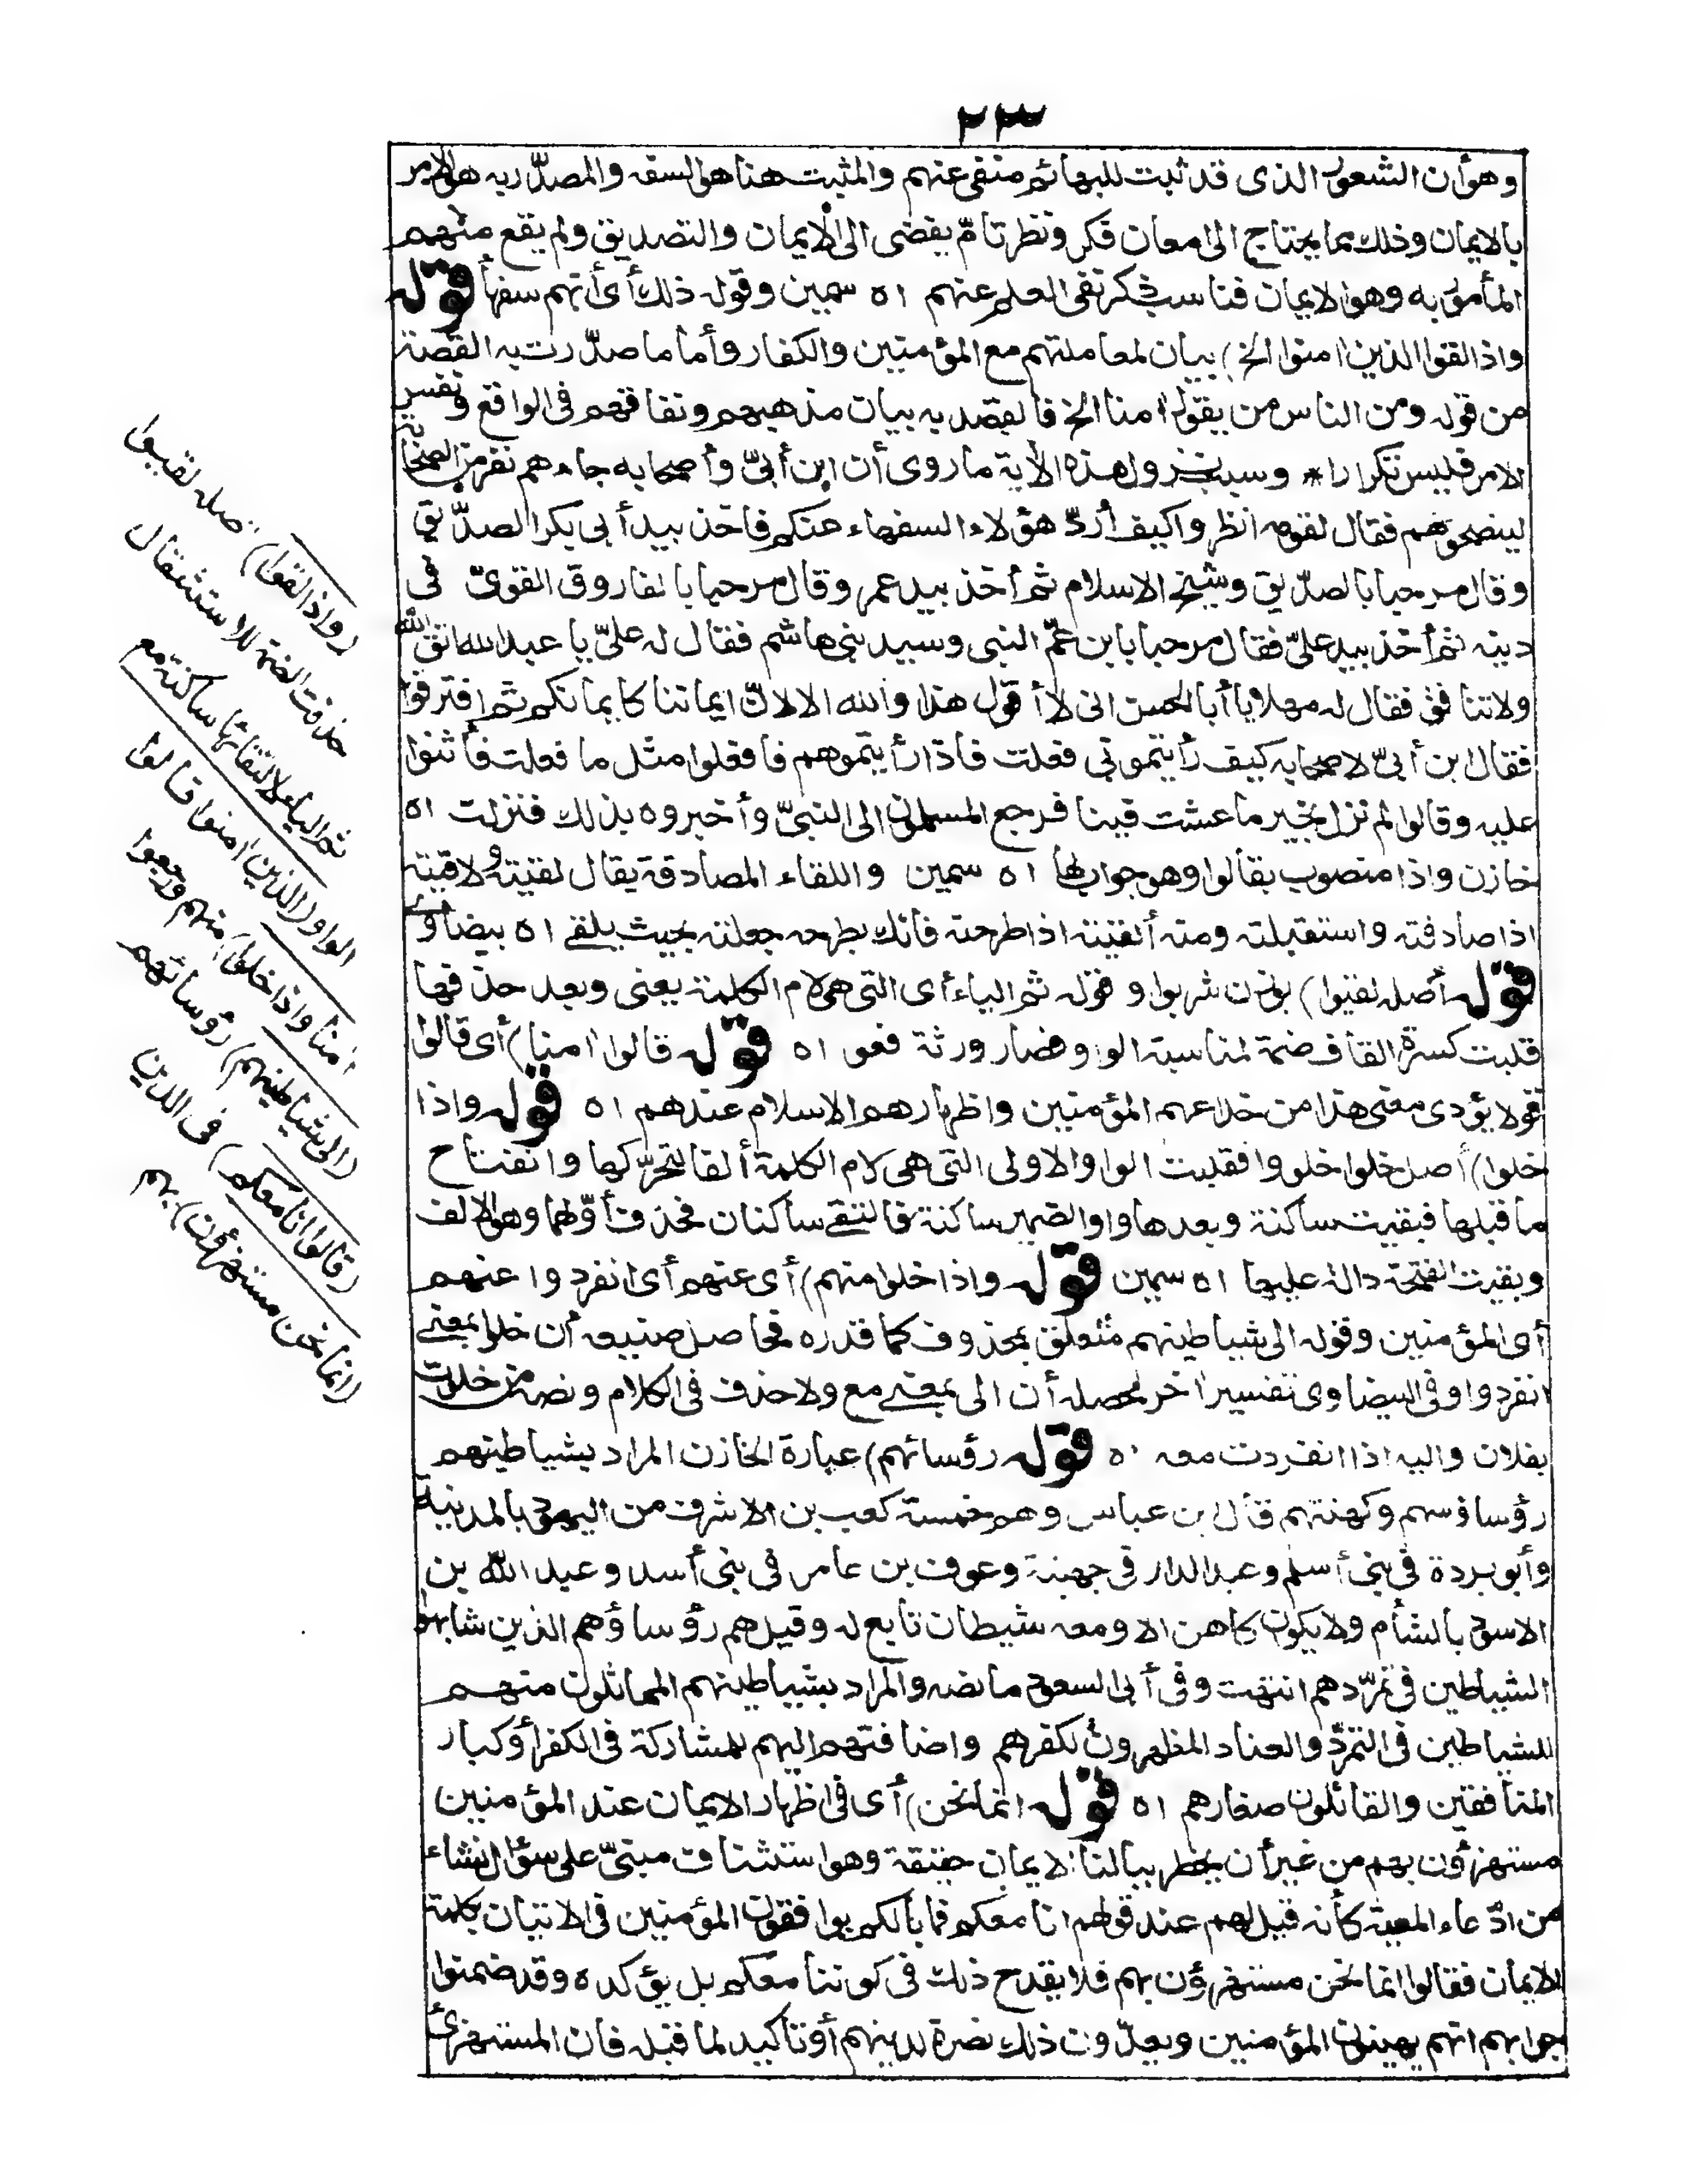 ٢٣
وهو أن الشعور الذى قد ثبت للبهائم منفى عنهم والمثبت هنا هو السفه والمصدّر به هو الامر
بالايمان وذلك مما يحتاج الى امعان فكر ونظر تامّ يفضى الى الايمان والتصديق ولم يقع منهم
المأمور به وهو الايمان فناسب ذكر نفى العلم عنهم اه سمين وقوله ذلك أى أنهم سفهاء قوله
واذا لقوا الذين اٰمنوا الخ) بيان لمعاملتهم مع المؤمنين والكفار وأما ما صدّرت به القصة
من قوله ومن الناس من يقول اٰمنا الخ فالقصد به بيان مذهبهم ونفاقهم فى الواقع ونفس
الامر فليس تكرارا * وسبب نزول هذه الاٰية ما روى أن ابن أبىّ وأصحابه جاءهم نفر من الصحابة
لينصحوهم فقال لقومه انظروا كيف أردّ هؤلاء السفهاء عنكم فاخذ بيد أبى بكر الصدّيق
وقال مرحبا بالصدّيق وشيخ الاسلام ثم أخذ بيد عمر وقال مرحبا بالفاروق القوىّ فى
دينه ثم أخذ بيد علىّ فقال مرحبا بابن عمّ النبى وسيد بنى هاشم فقال له علىّ يا عبد الله اتق الله
ولا تنافق فقال له مهلا يا أبا الحسن انى لا أقول هذا والله الا لانّ ايماننا كايمانكم ثم افترقوا
فقال ابن أبىّ لاصحابه كيف رأيتمونى فعلت فاذا رأيتموهم فافعلوا مثل ما فعلت فأثنوا
عليه وقالوا لم نزل بخير ما عشت فينا فرجع المسلمون الى النبىّ وأخبروه بذلك فنزلت اه
خازن واذا منصوب بقالوا وهو جواب لها اه سمين واللقاء المصادفة يقال لقيته ولاقيته
اذا صادفته واستقبلته ومنه ألقيته اذا طرحته فانك بطرحه جعلته بحيث يلقى اه بيضاوى
قوله أصله لقيوا) بوزن شربوا وقوله ثم الياء أى التى هى لام الكلمة يعنى وبعد حذفها
قلبت كسرة القاف ضمة لمناسبة الواو فصار وزنه فعوا اه قوله قالوا اٰمنا) أى قالوا
قولا يؤدى معنى هذا من خداعهم المؤمنين واظهارهم الاسلام عندهم اه قوله واذا
خلوا) أصل خلوا خلووا فقلبت الواو الاولى التى هى لام الكلمة ألفا لتحرّكها وانفتاح
ما قبلها فبقيت ساكنة وبعدها واو الضمير ساكنة فالتقى ساكنان فحذف أوّلهما وهو الالف
وبقيت الفتحة دالة عليها اه سمين قوله واذا خلوا منهم) أى عنهم أى انفردوا عنهم
أى المؤمنين وقوله الى شياطينهم متعلق بمحذوف كما قدره فحاصل صنيعه أن خلوا بمعنى
انفردوا وفى البيضاوى تفسير اٰخر محصله أن الى بمعنى مع ولا حذف فى الكلام ونصه من خلوت
بفلان واليه اذا انفردت معه اه قوله رؤسائهم) عبارة الخازن المراد بشياطينهم
رؤساؤهم وكهنتهم قال ابن عباس وهم خمسة كعب بن الاشرف من اليهود بالمدينة
وأبو بردة فى بنى أسلم وعبد الدار فى جهينة وعوف بن عامر فى بنى أسد وعبد الله بن
الاسود بالشأم ولا يكون كاهن الا ومعه شيطان تابع له وقيل هم رؤساؤهم الذين شابهوا
الشياطين فى تمرّدهم انتهت وفى أبى السعود ما نصه والمراد بشياطينهم المماثلون منهم
للشياطين فى التمرّد والعناد المظهرون لكفرهم واضافتهم اليهم للمشاركة فى الكفر أو كبار
المنافقين والقائلون صغارهم اه قوله انما نحن) أى فى اظهار الايمان عند المؤمنين
مستهزؤن بهم من غير أن يخطر ببالنا الايمان حقيقة وهو استئناف مبنىّ على سؤال نشاء
من ادّعاء المعية كأنه قيل لهم عند قولهم انا معكم فما بالكم توافقون المؤمنين فى الاتيان بكلمة
الايمان فقالوا انما نحن مستهزؤن بهم فلا يقدح ذلك فى كوننا معكم بل يؤكده وقد ضمنوا
جوابهم انهم يهينون المؤمنين ويعدّون ذلك نصرة لدينهم أو تأكيد لما قبله فان المستهزئ
(واذا لقوا) أصله لقيوا
حذفت الضمة للاستثقال
ثم الياء لالتقائها ساكنة مع
الواو (الذين اٰمنوا قالوا
اٰمنا واذا خلوا) منهم ورجعوا
(الى شياطينهم) رؤسائهم
(قالوا انا معكم) فى الدين
(انما نحن مستهزؤن) بهم